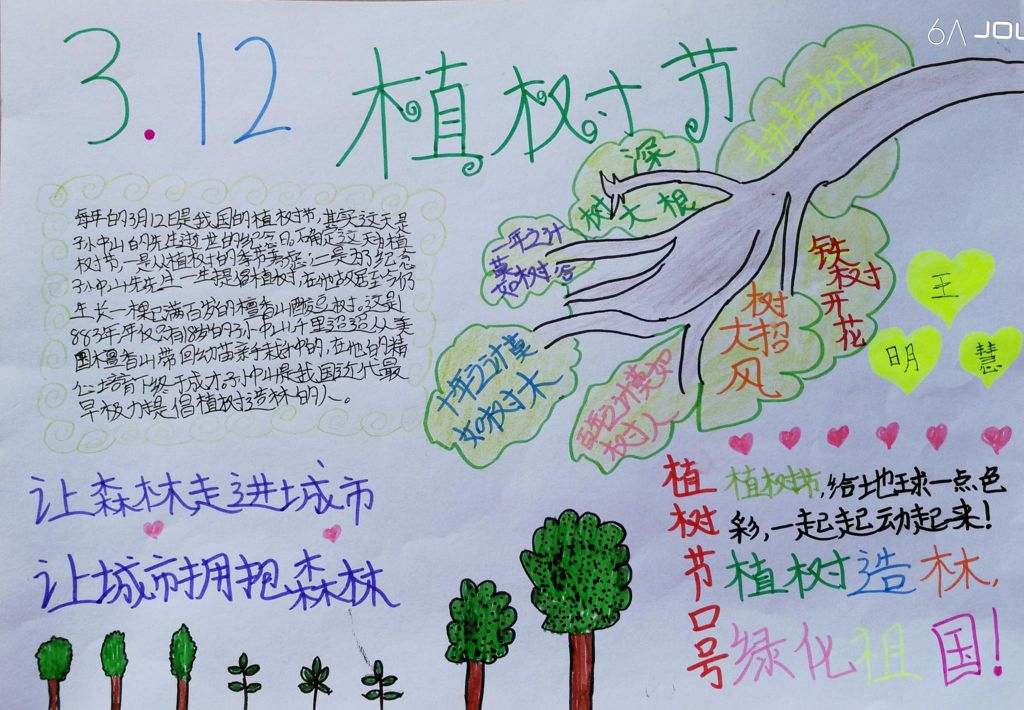 3.12 植树节
每年的3月12日是我国的植树节,其实这天是
孙中山的先生逝世的纪念日。确定这天为植
树节,一是从植树的季节考虑;二是为纪念
孙中山先生一生提倡植树,在他故居至今仍
生长一棵已满百岁的檀香山酸豆树。这是
883年年仅只有18岁的孙中山千里迢迢从美
国檀香山带回幼苗亲手栽种的,在他的精
心培育下终于成才。孙中山是我国近代最
早极力提倡植树造林的人。
树大根深
一年之计
莫如树谷
十年之计莫
如树木
百年之计莫如
树人
树大招风
铁树开花
王
明
慧
让森林走进城市
让城市拥抱森林
植树节口号
植树节,给地球一点色
彩,一起起动起来!
植树造林,
绿化祖国!
6A JOU